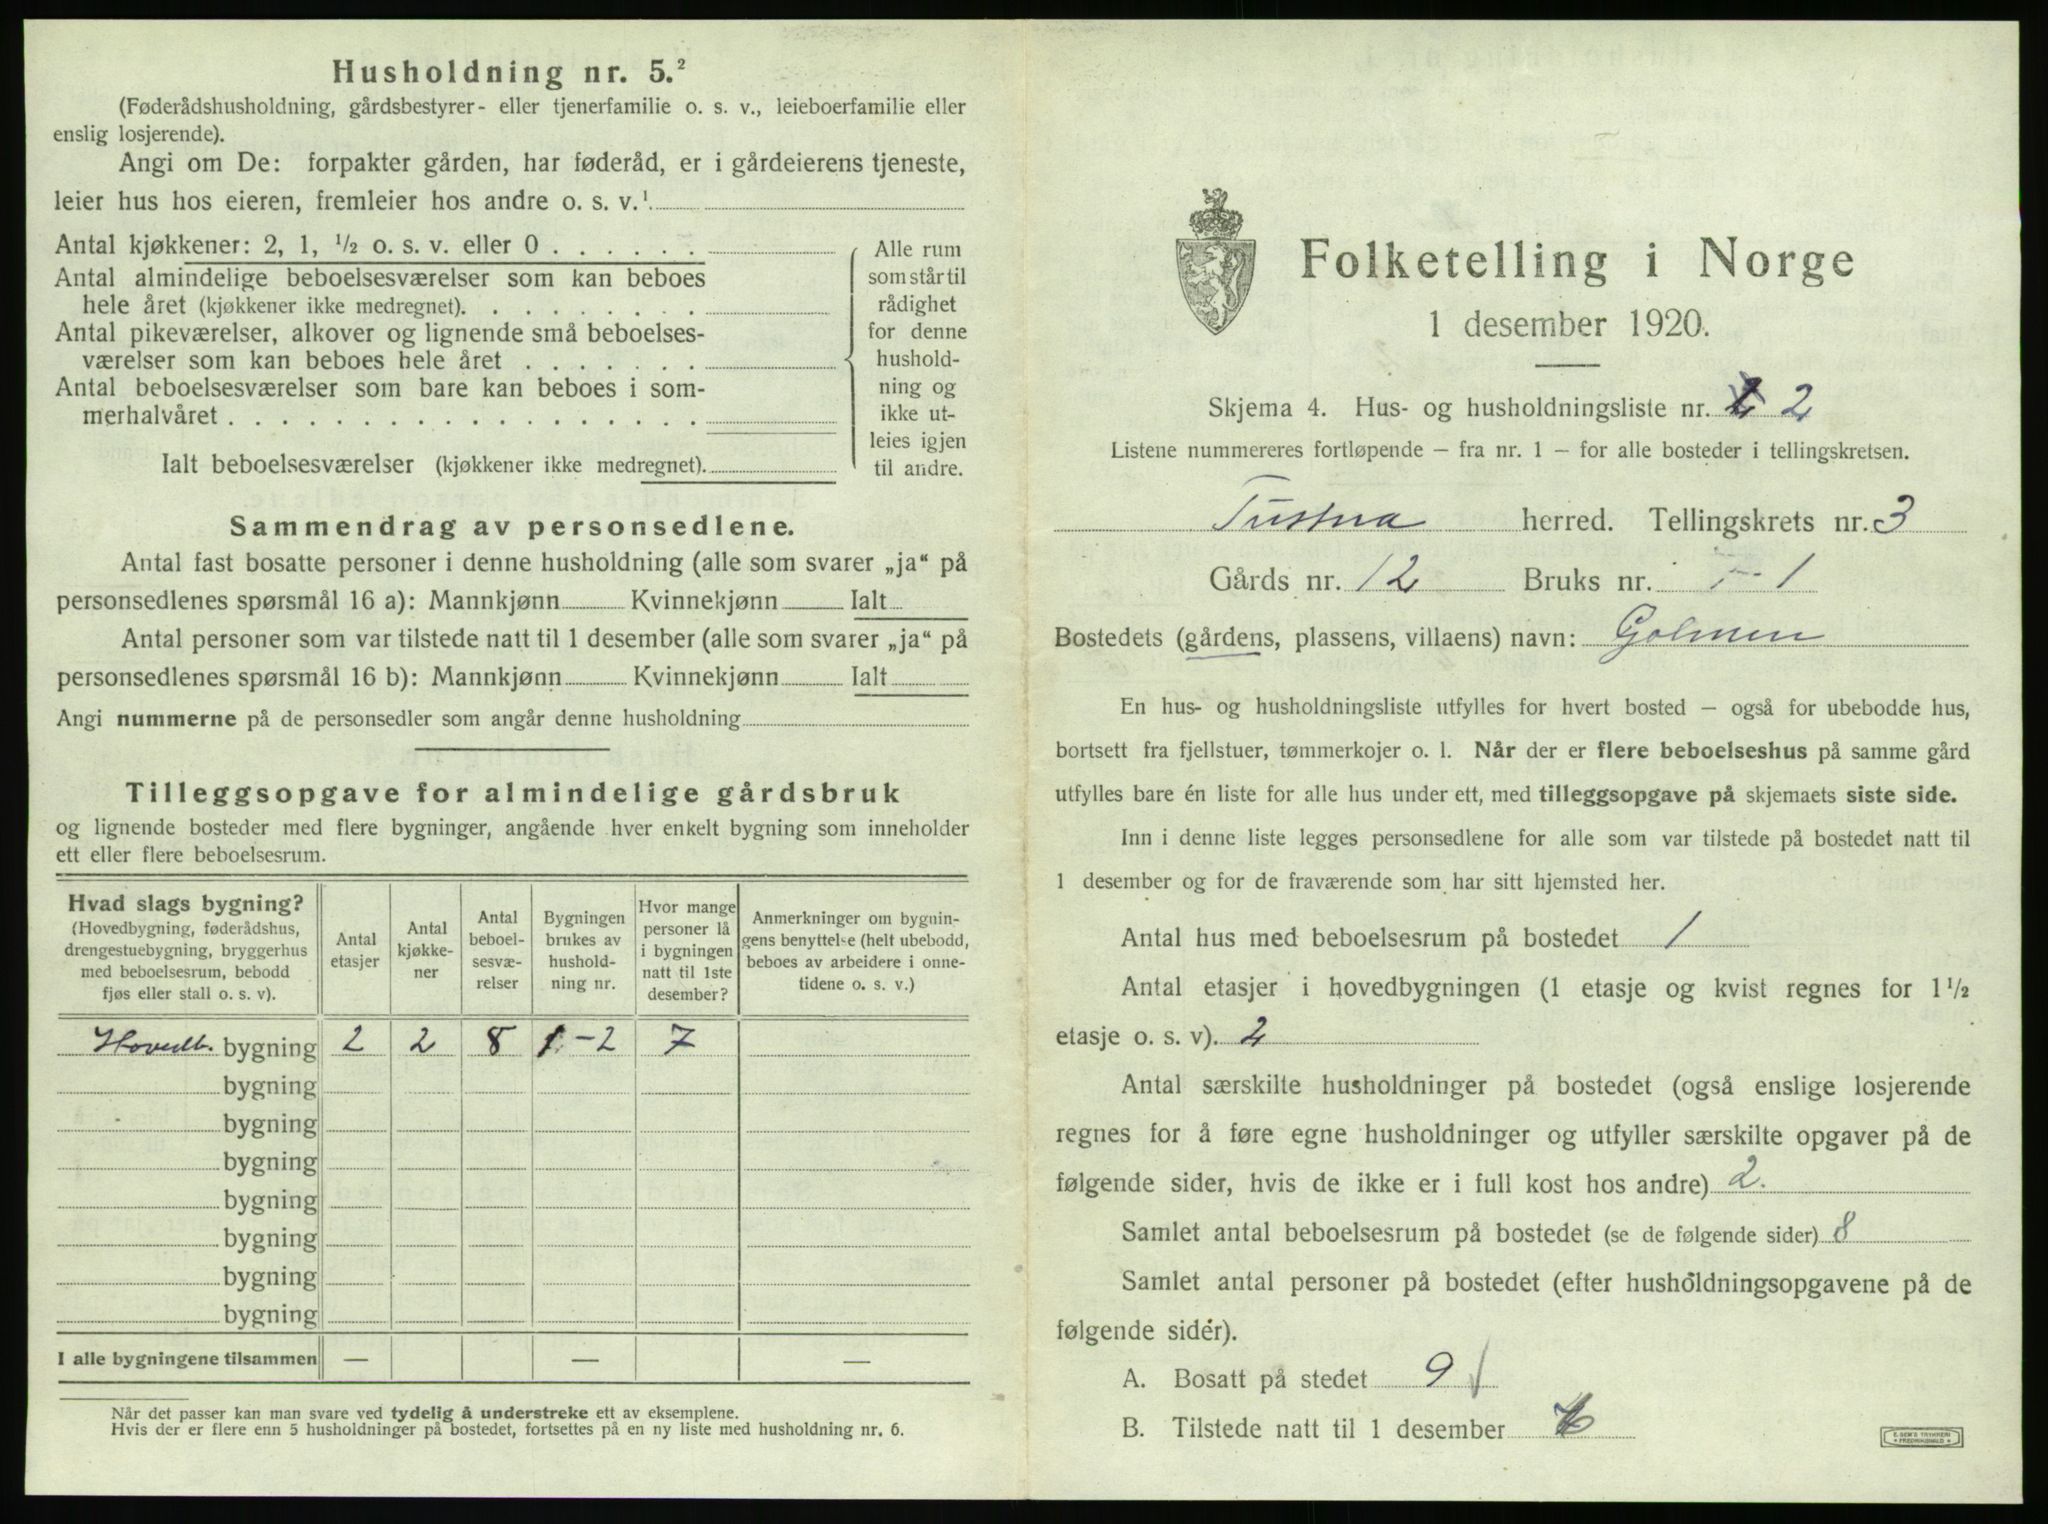 Husholdning nr. 5.²
(Føderådshusholdning, gårdsbestyrer- eller tjenerfamilie o. s. v., leieboerfamilie eller
enslig losjerende).
Angi om De: forpakter gården, har føderåd, er i gårdeierens tjeneste,
leier hus hos eieren, fremleier hos andre o. s. v.¹
Antal kjøkkener: 2, 1, ½ o. s. v. eller 0 . . . . . .
Antal almindelige beboelsesværelser som kan beboes
hele året (kjøkkener ikke medregnet). . . . . . . . .
Antal pikeværelser, alkover og lignende små beboelses-
værelser som kan beboes hele året . . . . . . .
Antal beboelsesværelser som bare kan beboes i som-
merhalvåret . . . . . . . . . . . . . . . . . .
Ialt beboelsesværelser (kjøkkener ikke medregnet).
Alle rum
som står til
rådighet
for denne
hushold-
ning og
ikke ut-
leies igjen
til andre.
Sammendrag av personsedlene.
Antal fast bosatte personer i denne husholdning (alle som svarer „ja“ på
personsedlenes spørsmål 16 a): Mannkjønn Kvinnekjønn Ialt
Antal personer som var tilstede natt til 1 desember (alle som svarer „ja“ på
personsedlenes spørsmål 16 b): Mannkjønn Kvinnekjønn Ialt
Angi nummerne på de personsedler som angår denne husholdning
Tilleggsopgave for almindelige gårdsbruk
og lignende bosteder med flere bygninger, angående hver enkelt bygning som inneholder
ett eller flere beboelsesrum.
Hvad slags bygning?
(Hovedbygning, føderådshus,
drengestuebygning, bryggerhus
med beboelsesrum, bebodd
fjøs eller stall o. s. v).
Antal
etasjer
Antal
kjøkke-
ner
Antal
beboel-
sesvæ-
relser
Bygningen
brukes av
hushold-
ning nr.
Hvor mange
personer lå
i bygningen
natt til 1ste
desember?
Anmerkninger om bygnin-
gens benyttelse (helt ubebodd,
beboes av arbeidere i onne-
tidene o. s. v.)
Hovedb. bygning 2 2 8 1-2 7
bygning
bygning
bygning
bygning
bygning
bygning
bygning
I alle bygningene tilsammen — — —
Når det passer kan man svare ved tydelig å understreke ett av eksemplene.
Hvis der er flere enn 5 husholdninger på bostedet, fortsettes på en ny liste med husholdning nr. 6.
Folketelling i Norge
1 desember 1920.
Skjema 4. Hus- og husholdningsliste nr. 2
Listene nummereres fortløpende — fra nr. 1 — for alle bosteder i tellingskretsen.
Tustna herred. Tellingskrets nr. 3
Gårds nr. 12 Bruks nr. 1
Bostedets (gårdens, plassens, villaens) navn: Golmen
En hus- og husholdningsliste utfylles for hvert bosted — også for ubebodde hus,
bortsett fra fjellstuer, tømmerkojer o. l. Når der er flere beboelseshus på samme gård
utfylles bare én liste for alle hus under ett, med tilleggsopgave på skjemaets siste side.
Inn i denne liste legges personsedlene for alle som var tilstede på bostedet natt til
1 desember og for de fraværende som har sitt hjemsted her.
Antal hus med beboelsesrum på bostedet 1
Antal etasjer i hovedbygningen (1 etasje og kvist regnes for 1½
etasje o. s. v). 2
Antal særskilte husholdninger på bostedet (også enslige losjerende
regnes for å føre egne husholdninger og utfyller særskilte opgaver på de
følgende sider, hvis de ikke er i full kost hos andre) 2.
Samlet antal beboelsesrum på bostedet (se de følgende sider) 8
Samlet antal personer på bostedet (efter husholdningsopgavene på de
følgende sider).
A. Bosatt på stedet 9
B. Tilstede natt til 1 desember
E. SEM'S TRYKKERI
FREDRIKSHALD